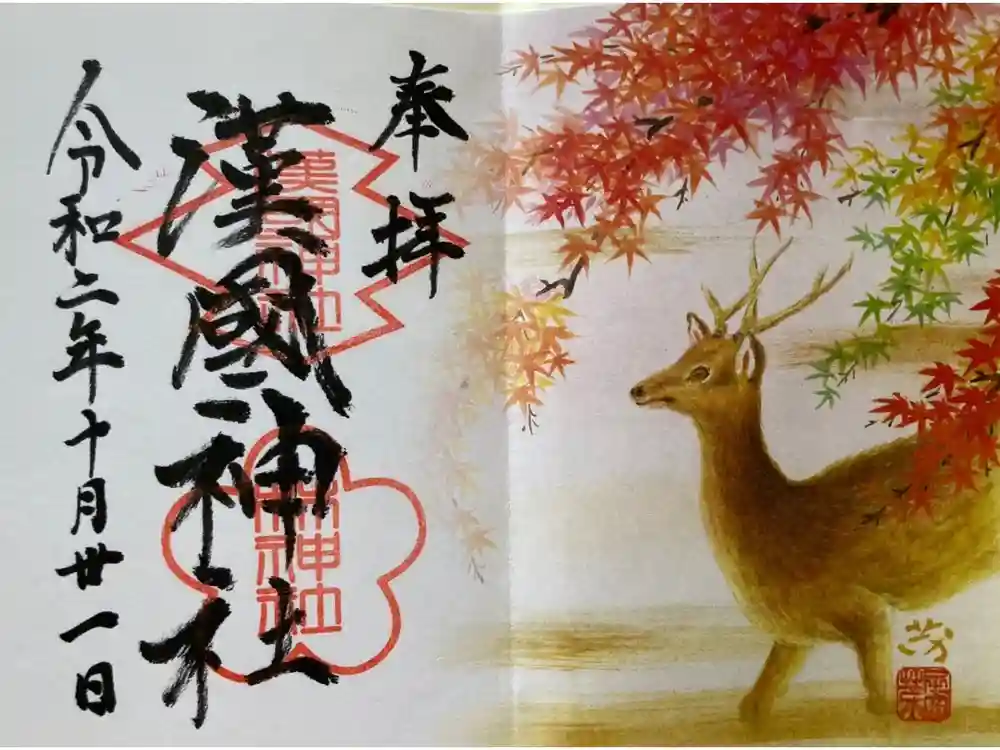 奉拝
漢國神社
漢國神社
林神社
令和二年十月卅一日